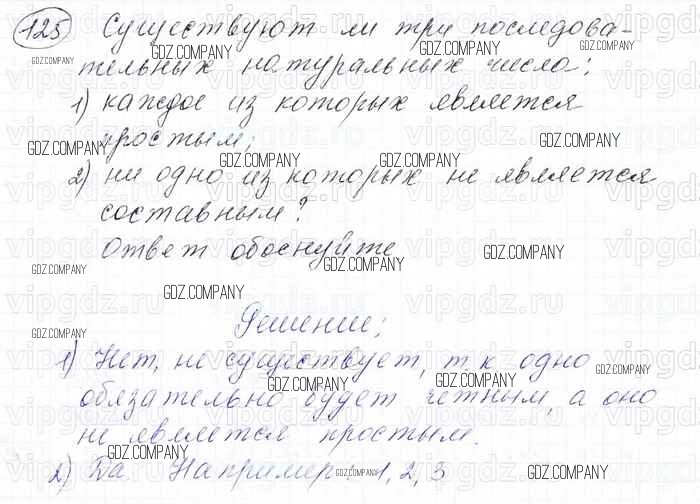 125 Существуют ли три последова-
тельных натуральных числа:
1) каждое из которых является
простым;
2) ни одно из которых не является
составным?
Ответ обоснуйте
Решение:
1) Нет, не существует, т.к одно
обязательно будет четным, а оно
не является простым.
2) Да Например, 1, 2, 3